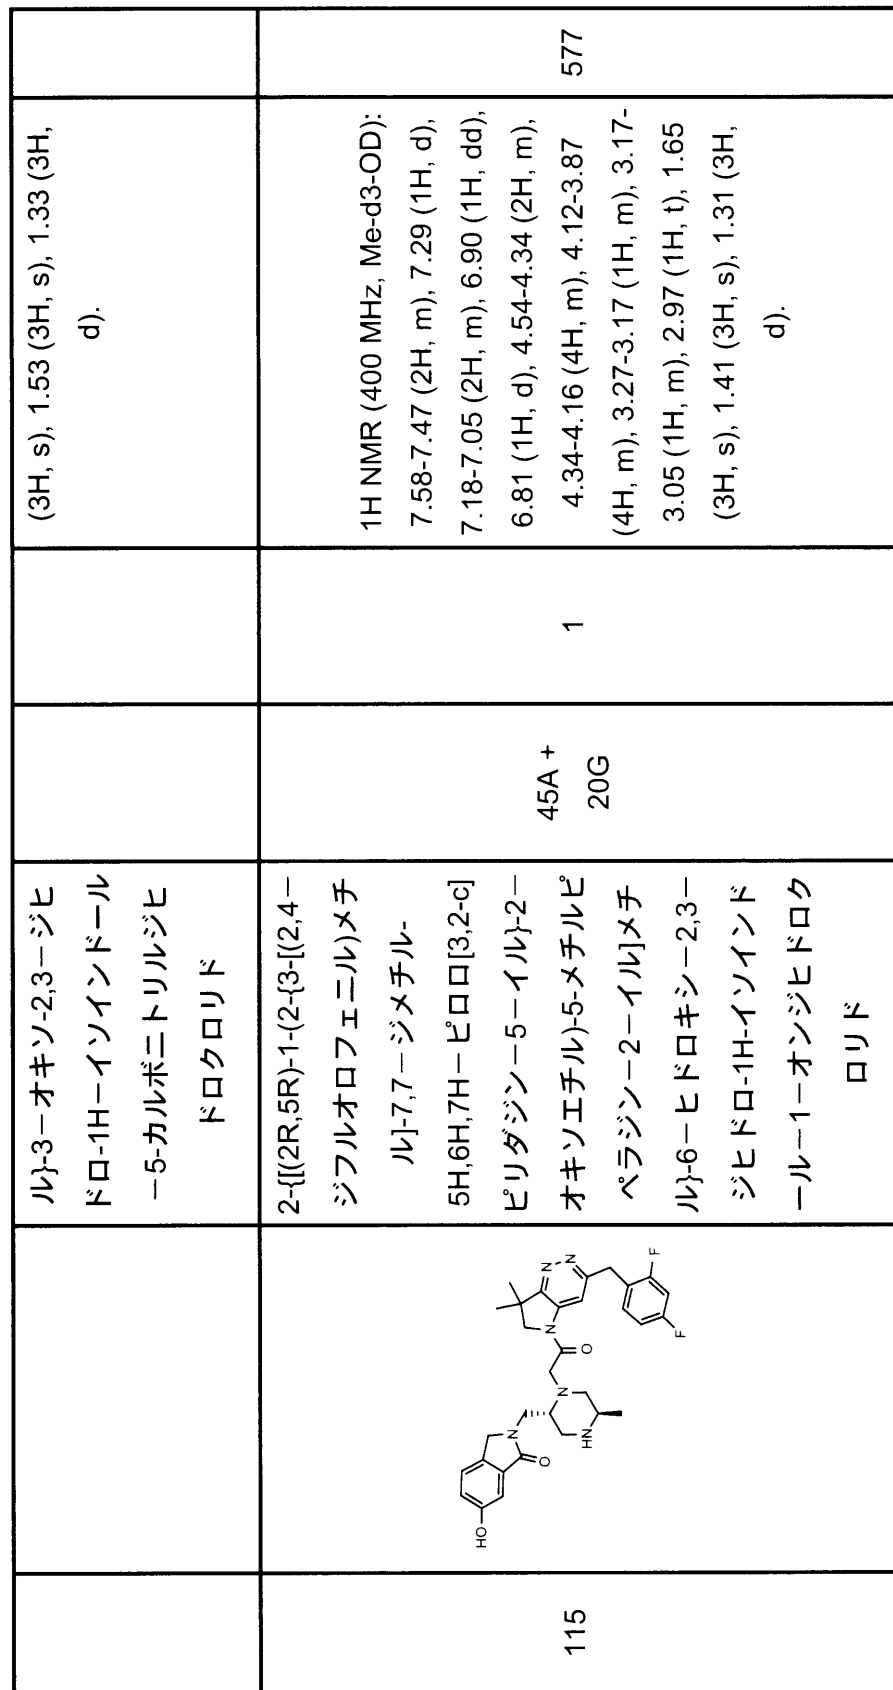 ル}-3－オキソ-2,3－ジヒ
ドロ-1H－イソインドール
－5-カルボニトリルジヒ
ドロクロリド
(3H, s), 1.53 (3H, s), 1.33 (3H,
d).
115
HO
N
O
N
HN
O
N
N
N
F
F
2-{[(2R,5R)-1-(2-{3-[(2,4－
ジフルオロフェニル)メチ
ル]-7,7－ジメチル-
5H,6H,7H－ピロロ[3,2-c]
ピリダジン－5－イル}-2－
オキソエチル)-5-メチルピ
ペラジン－2－イル]メチ
ル}-6－ヒドロキシ－2,3－
ジヒドロ-1H-イソインド
ール－1－オンジヒドロク
ロリド
45A +
20G
1
1H NMR (400 MHz, Me-d3-OD):
7.58-7.47 (2H, m), 7.29 (1H, d),
7.18-7.05 (2H, m), 6.90 (1H, dd),
6.81 (1H, d), 4.54-4.34 (2H, m),
4.34-4.16 (4H, m), 4.12-3.87
(4H, m), 3.27-3.17 (1H, m), 3.17-
3.05 (1H, m), 2.97 (1H, t), 1.65
(3H, s), 1.41 (3H, s), 1.31 (3H,
d).
577